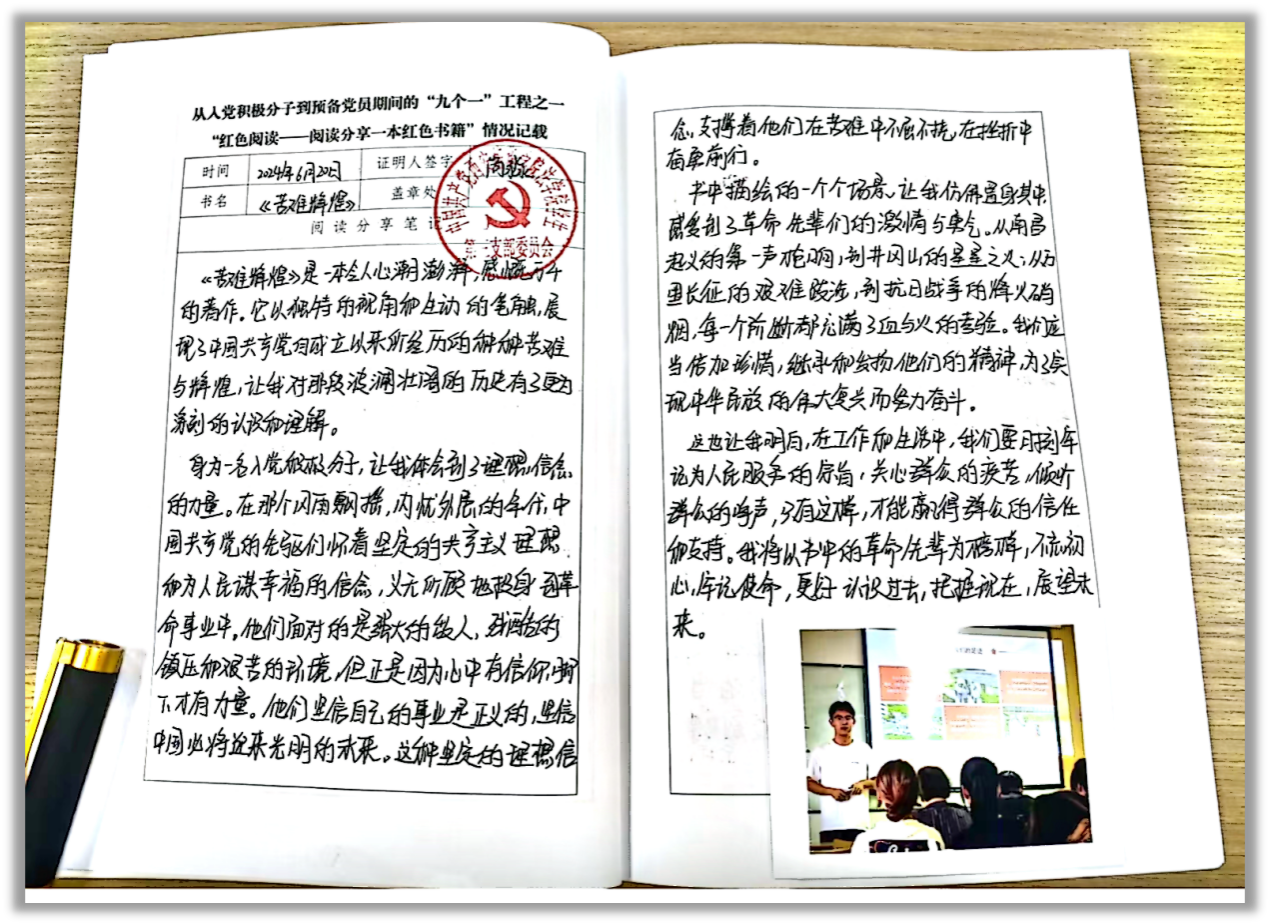 从入党积极分子到预备党员期间的“九个一”工程之一
“红色阅读——阅读分享一本红色书籍”情况记载
时间 2024年6月20日 证明人签字
书名 《苦难辉煌》 盖章处
阅读分享笔记
第二支部委员会
《苦难辉煌》是一本令人心潮澎湃，感慨万千
的著作。它以独特的视角和生动的笔触，展
现了中国共产党自成立以来所经历的种种苦难
与辉煌，让我对那段波澜壮阔的历史有了更为
深刻的认识和理解。
身为一名入党积极分子，让我体会到了理想信念
的力量。在那个风雨飘摇，内忧外患的年代，中
国共产党的先驱们怀着坚定的共产主义理想
和为人民谋幸福的信念，义无所顾地投身到革
命事业中。他们面对的是强大的敌人，残酷的
镇压和艰苦的环境，但正是因为心中有信仰，脚
下才有力量。他们坚信自己的事业是正义的，坚信
中国必将迎来光明的未来。这种坚定的理想信
念，支撑着他们在苦难中不屈不挠，在挫折中
奋勇前行。
书中描绘的一个个场景，让我仿佛置身其中，
感受到了革命先辈们的激情与勇气。从南昌
起义的第一声枪响，到井冈山的星星之火；从万
里长征的艰难跋涉，到抗日战争的烽火硝
烟，每一个阶段都充满了血与火的考验。我们应
当倍加珍惜，继承和发扬他们的精神，为了实
现中华民族的伟大复兴而努力奋斗。
这也让我明白，在工作和生活中，我们要时刻牢
记为人民服务的宗旨，关心群众的疾苦，倾听
群众的呼声，只有这样，才能赢得群众的信任
和支持。我将以书中的革命先辈为榜样，不忘初
心，牢记使命，更好认识过去，把握现在，展望未
来。